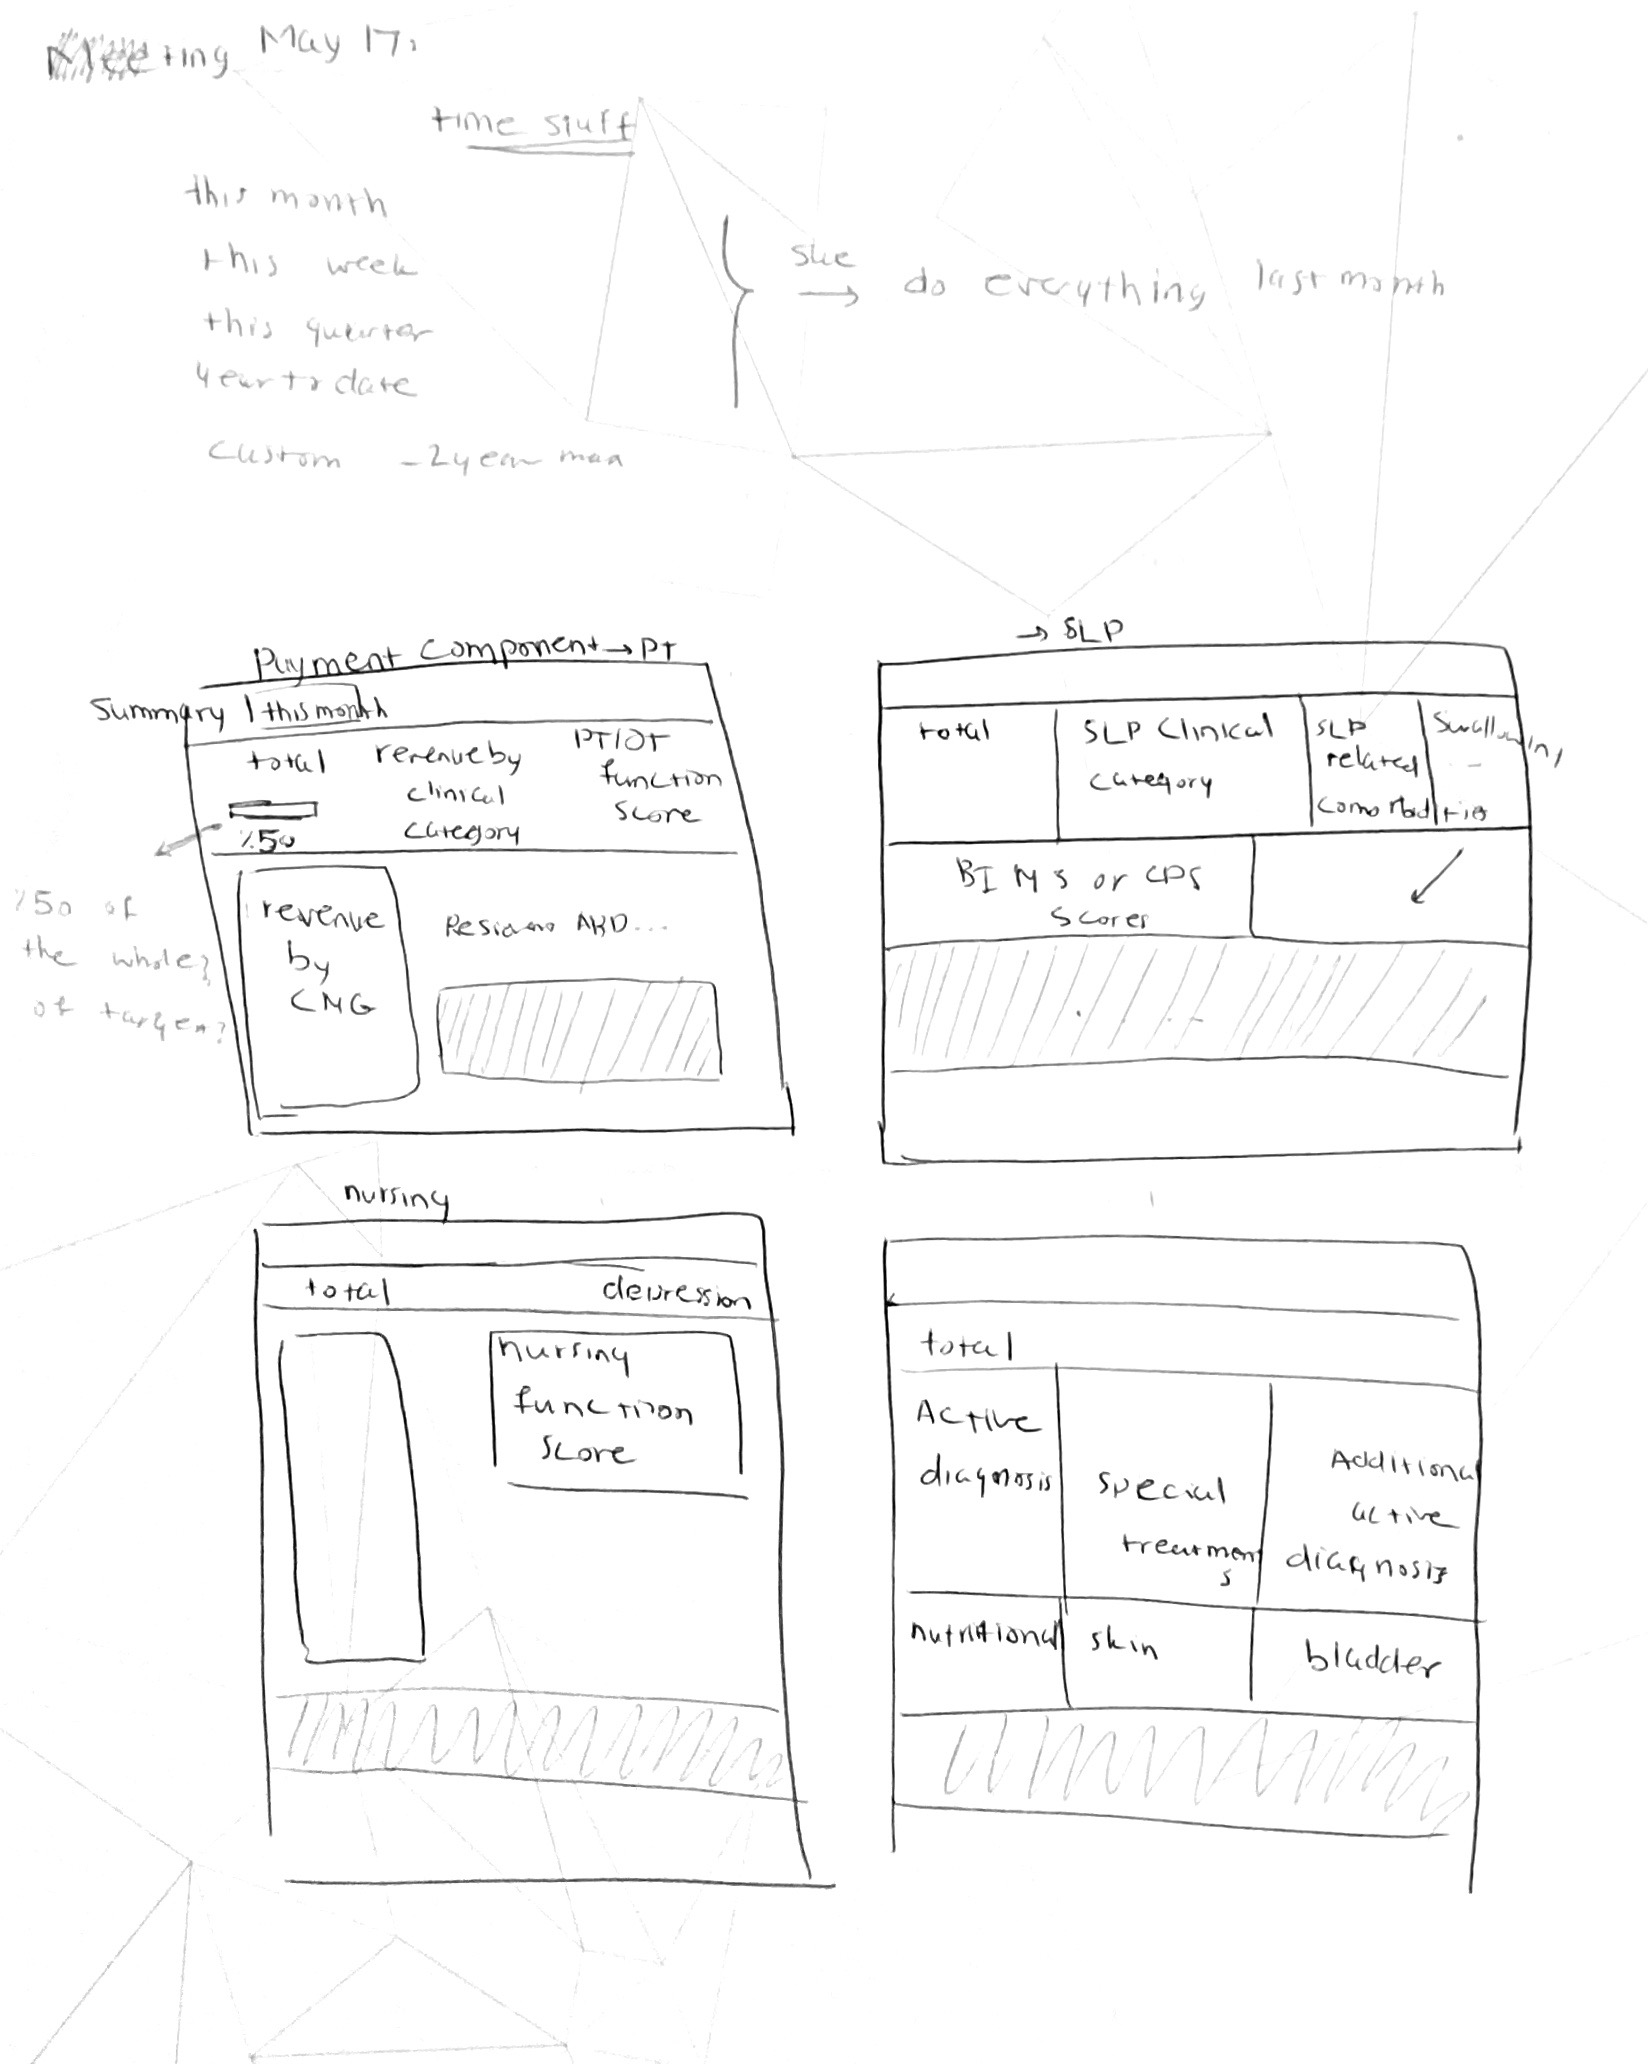 Meeting May 17,
time stuff
this month
this week
this quarter
year to date
custom - 2 year max
she
→ do everything last month
Payment Component → PT
Summary | this month
total
%50
revenue by
clinical
category
PT/OT
function
score
%50 of
the whole?
of target?
revenue
by
CMG
ARD...
→ SLP
total
SLP Clinical
category
SLP
related
comorbid
Swallowing
BIMS or CPS
Scores
nursing
total
depression
nursing
function
score
total
Active
diagnosis
special
treatment
s
Additional
active
diagnosis
nutritional
skin
bladder